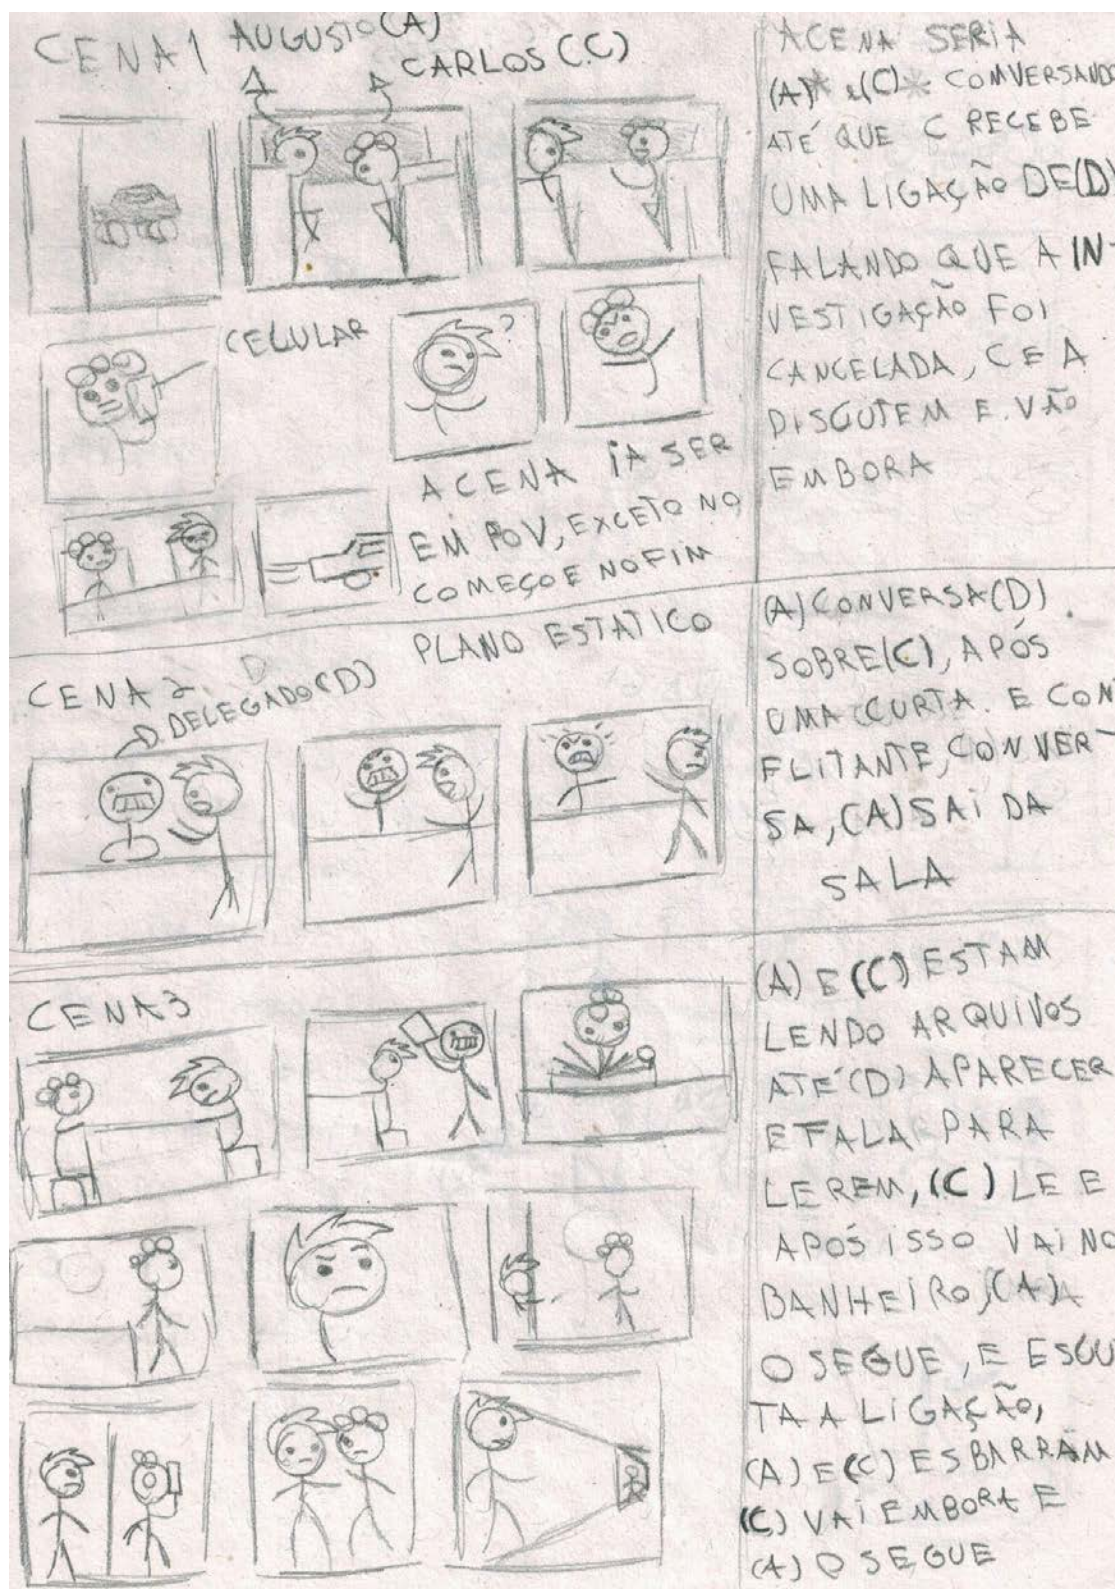 CENA 1
AUGUSTO(A)
CARLOS (C)
CELULAR
?
A CENA iA SER
EM POV, EXCETO NO
COMEÇO E NO FIM
A CENA SERIA
(A)* e(C)* COMVERSANDO
ATÉ QUE C RECEBE
UMA LIGAÇÃO DE(D)
FALANDO QUE A IN-
VESTIGAÇÃO FOI
CANCELADA, C E A
DISCUTEM E VÃO
EMBORA
CENA 2
D
DELEGADO(D)
PLANO ESTATICO
(A) CONVERSA(D)
SOBRE(C), APÓS
UMA CURTA. E CONT
FLITANTE, CONVER-
SA, (A) SAi DA
SALA
CENA3
(A) E (C) ESTAM
LENDO ARQUIVOS
ATÉ (D) APARECER
E FALA PARA
LEREM, (C) LE E
APÓS iSSO VAi NO
BANHEiRO, (A)
O SEGUE, E ESCU
TA A LiGAÇÃO,
(A) E (C) ESBARRAM
(C) VAi EMBORA E
(A) O SEGUE